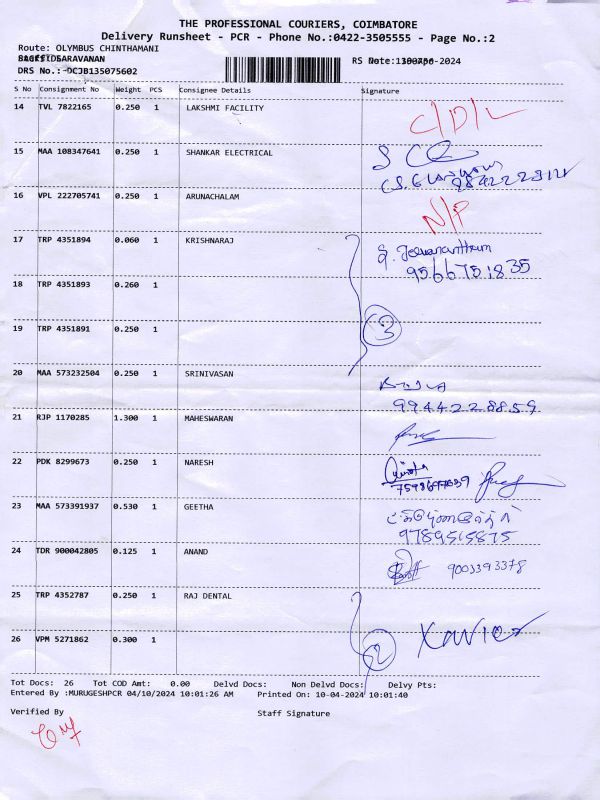 THE PROFESSIONAL COURIERS, COIMBATORE
Delivery Runsheet - PCR - Phone No.:0422-3505555 - Page No.:2
Route: OLYMBUS CHINTHAMANI
SARAVANAN
RS No
DRS No.:-DCJB135075602
S No Consignment No Weight PCS Consignee Details Signature
14 TVL 7822165 0.250 1 LAKSHMI FACILITY C/D/L
15 MAA 108347641 0.250 1 SHANKAR ELECTRICAL
16 VPL 222705741 0.250 1 ARUNACHALAM N/P
17 TRP 4351894 0.060 1 KRISHNARAJ
9566751835
18 TRP 4351893 0.260 1
19 TRP 4351891 0.250 1 3
20 MAA 573232504 0.250 1 SRINIVASAN
9944228859
21 RJP 1170285 1.300 1 MAHESWARAN
22 PDK 8299673 0.250 1 NARESH
23 MAA 573391937 0.530 1 GEETHA
9789515875
24 TDR 900042805 0.125 1 ANAND 9003393378
25 TRP 4352787 0.250 1 RAJ DENTAL
26 VPM 5271862 0.300 1 2 Xavier
Tot Docs: 26 Tot COD Amt: 0.00 Delvd Docs: Non Delvd Docs: Delvy Pts:
Entered By :MURUGESHPCR 04/10/2024 10:01:26 AM Printed On: 10-04-2024 10:01:40
Verified By Staff Signature